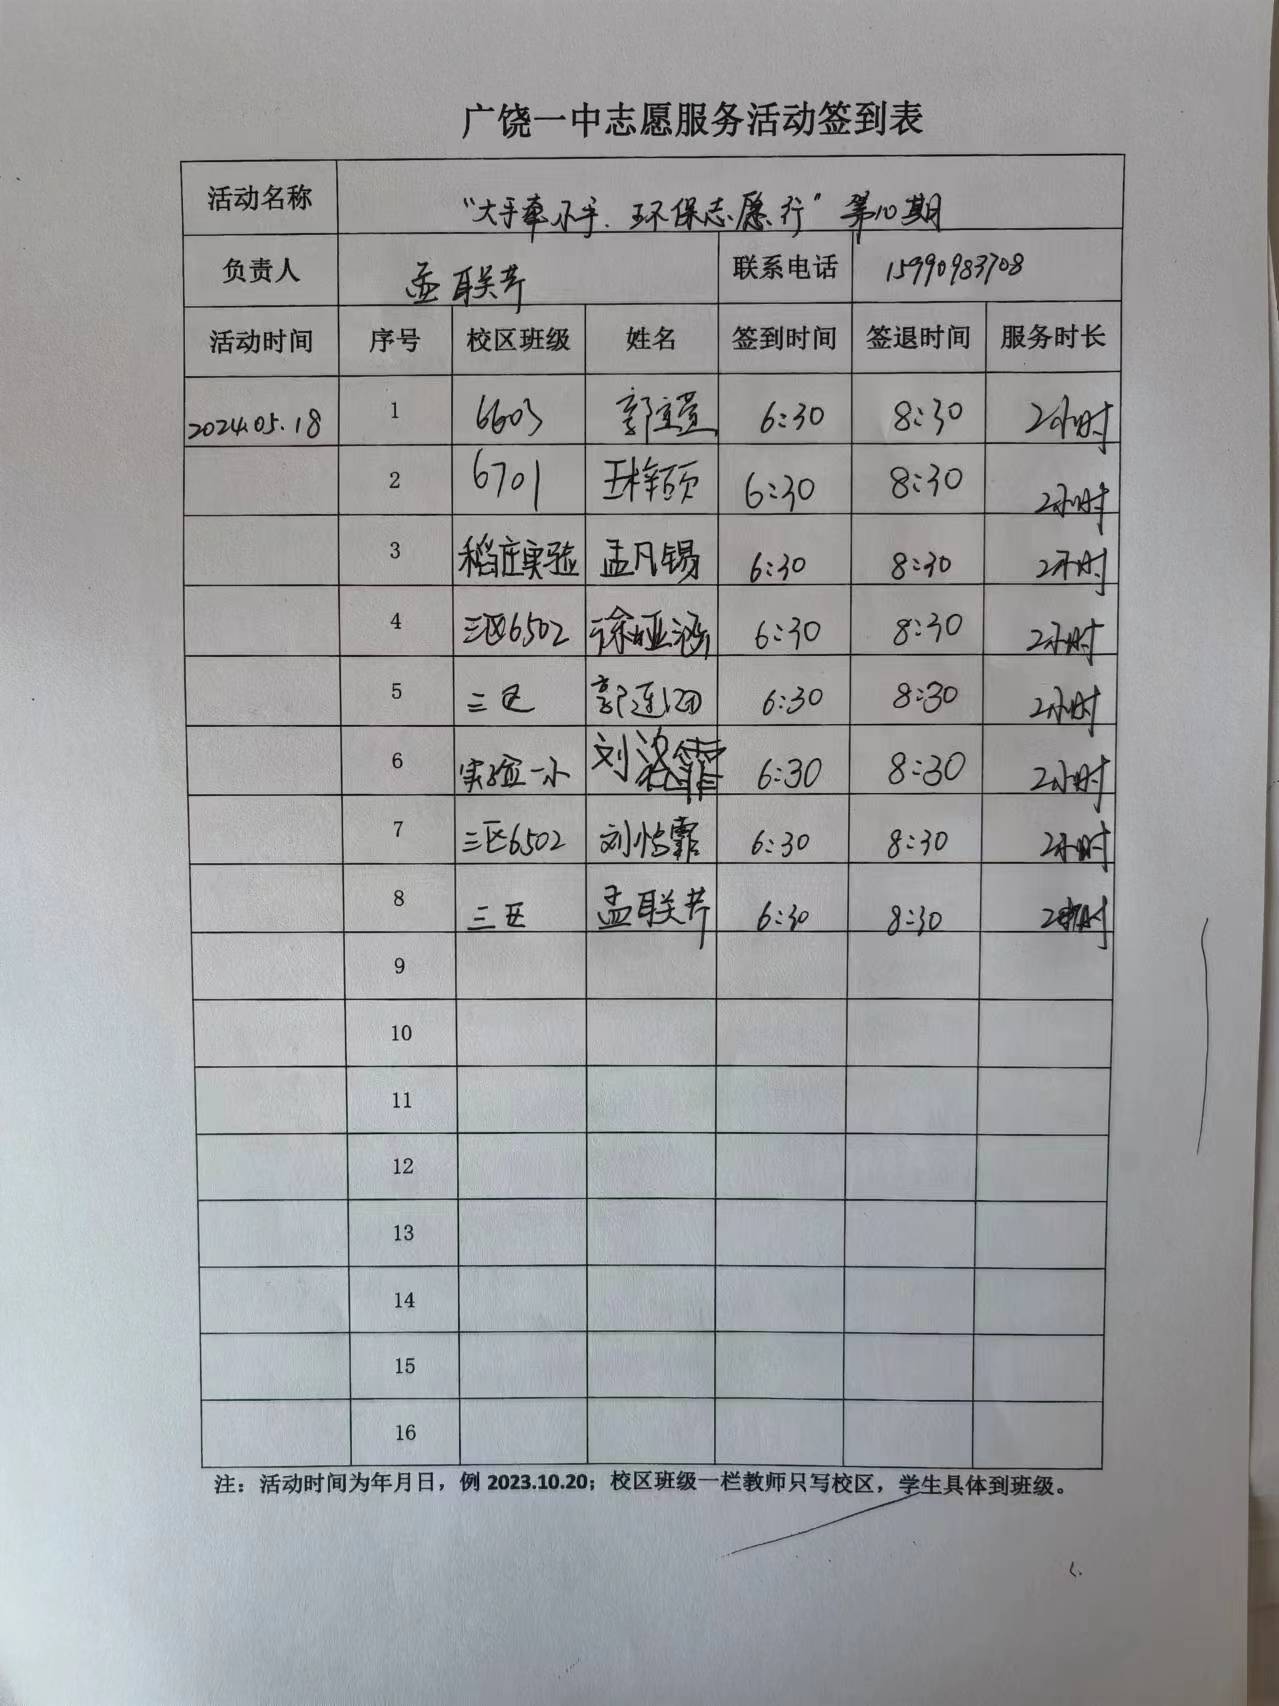 广饶一中志愿服务活动签到表
活动名称 “大手牵小手.环保志愿行”第10期
负责人 孟联芹 联系电话 15990983708
活动时间 序号 校区班级 姓名 签到时间 签退时间 服务时长
2024.05.18 1 6603 郭宜萱 6:30 8:30 2小时
2 6701 王梓硕 6:30 8:30 2小时
3 稻庄实验 孟凡锡 6:30 8:30 2小时
4 三区6502 徐娅涵 6:30 8:30 2小时
5 三区 郭连团 6:30 8:30 2小时
6 实验一小 刘 6:30 8:30 2小时
7 三区6502 刘怡霏 6:30 8:30 2小时
8 三区 孟联芹 6:30 8:30 2小时
9
10
11
12
13
14
15
16
注：活动时间为年月日，例 2023.10.20；校区班级一栏教师只写校区，学生具体到班级。